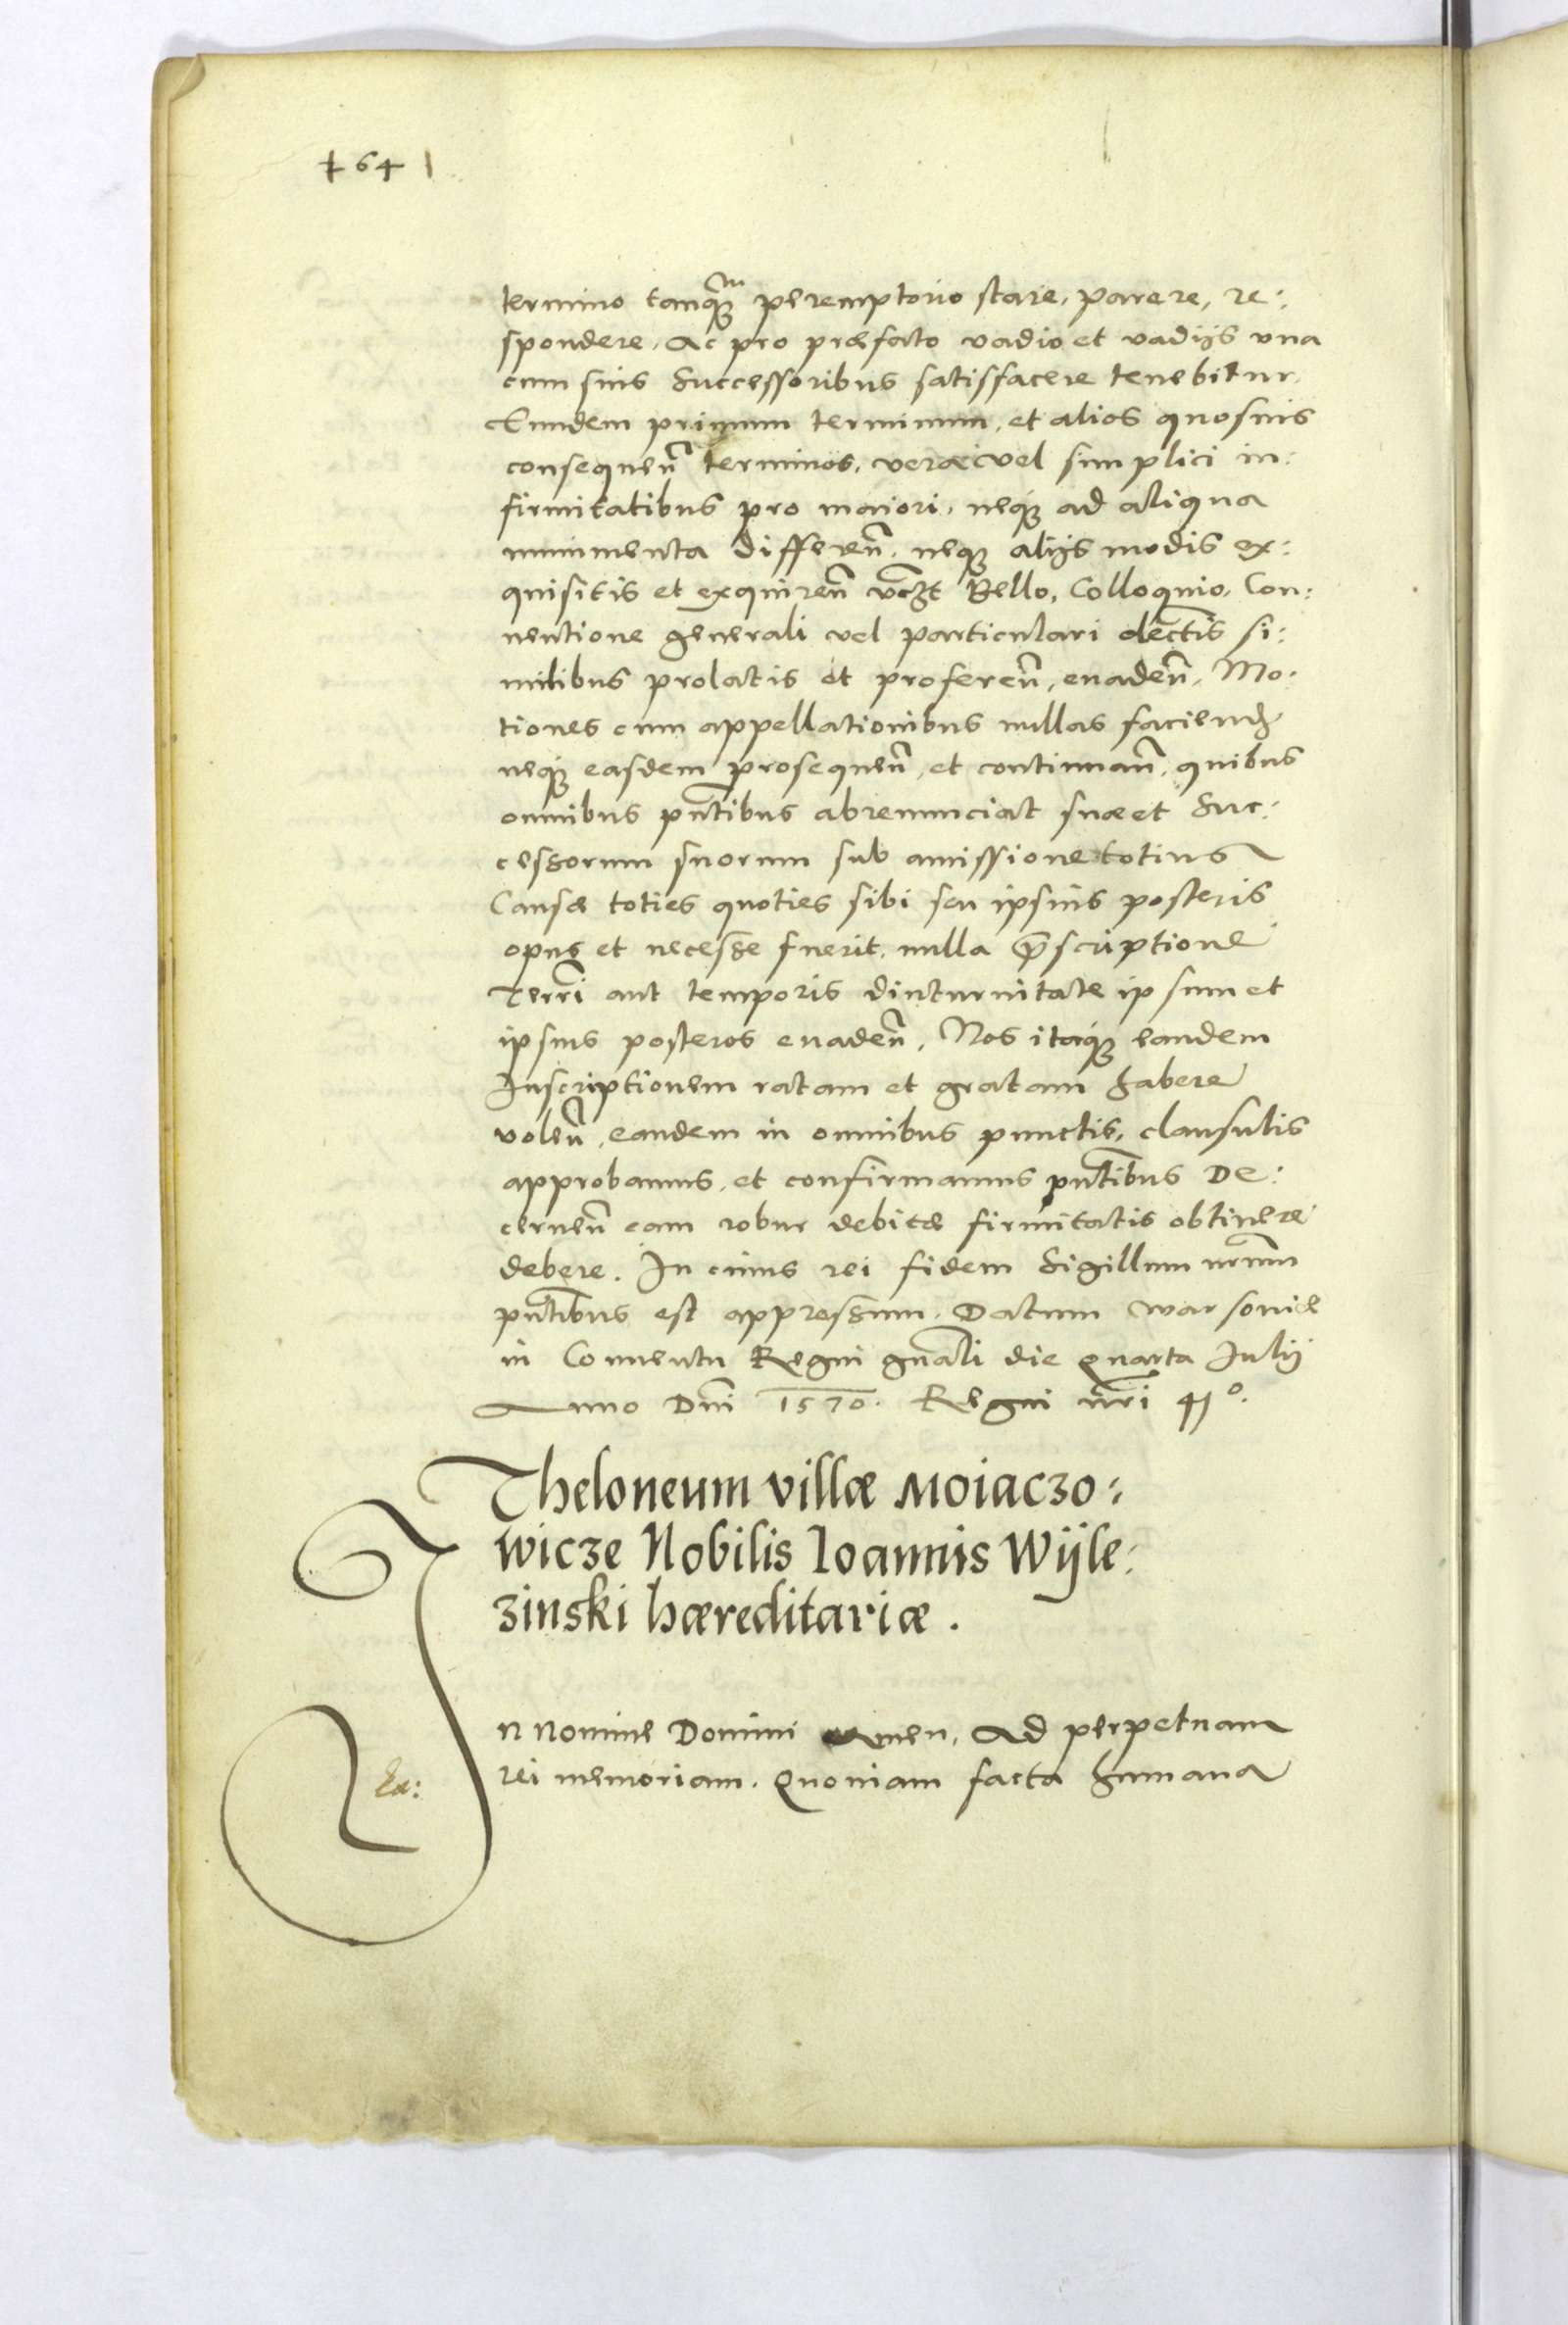 164
termino tanq̄ꝫ peremptorio stare, parere, re:
spondere, Ac pro præfato vadio et vadijs vna
cum suis Successoribus satisfacere tenebitur.
Eundem primum terminum, et alios quosuis
consequen̄ terminos, vera vel simplici in:
firmitatibus pro maiori, neqꝫ ad aliqua
munimenta differen̄, neqꝫ alijs modis ex:
quisitis et exquiren̄ vꝫt Bello, Colloquio, Con:
uentione generali vel particulari
milibus prolatis et proferen̄, euaden̄, Mo:
tiones cum appellationibus nullas faciend
neqꝫ easdem prosequen̄, et continuan̄, quibus
omnibus pn̄tibus abrenunciat suo et Suc:
cessorum suorum sub amissione totius
Causæ toties quoties sibi seu ipsius posteris
opus et necesse fuerit, nulla p̄scriptione
Terrī aut temporis diuturnitate ipsum et
ipsius posteros euaden̄, Nos itaqꝫ eandem
Inscriptionem ratam et gratam habere
volen̄, eandem in omnibus punctis, clausulis
approbamus, et confirmamus pn̄tibus De:
cernen̄ eam robur debitæ firmitatis obtinere
debere. In cuius rei fidem Sigillum nr̄um
pn̄tibus est appressum. Datum Warsouiæ
in Conuentu Regni gn̄ali die Quarta Iulij
Anno Dn̄i 1570. Regni nr̄i 41º.
Theloneum villæ Moiaczo:
wicze Nobilis Ioannis Wijle:
zinski hæreditariæ.
In Nomine Domini Amen, Ad perpetuam
Ex:
rei memoriam. Quoniam facta humana